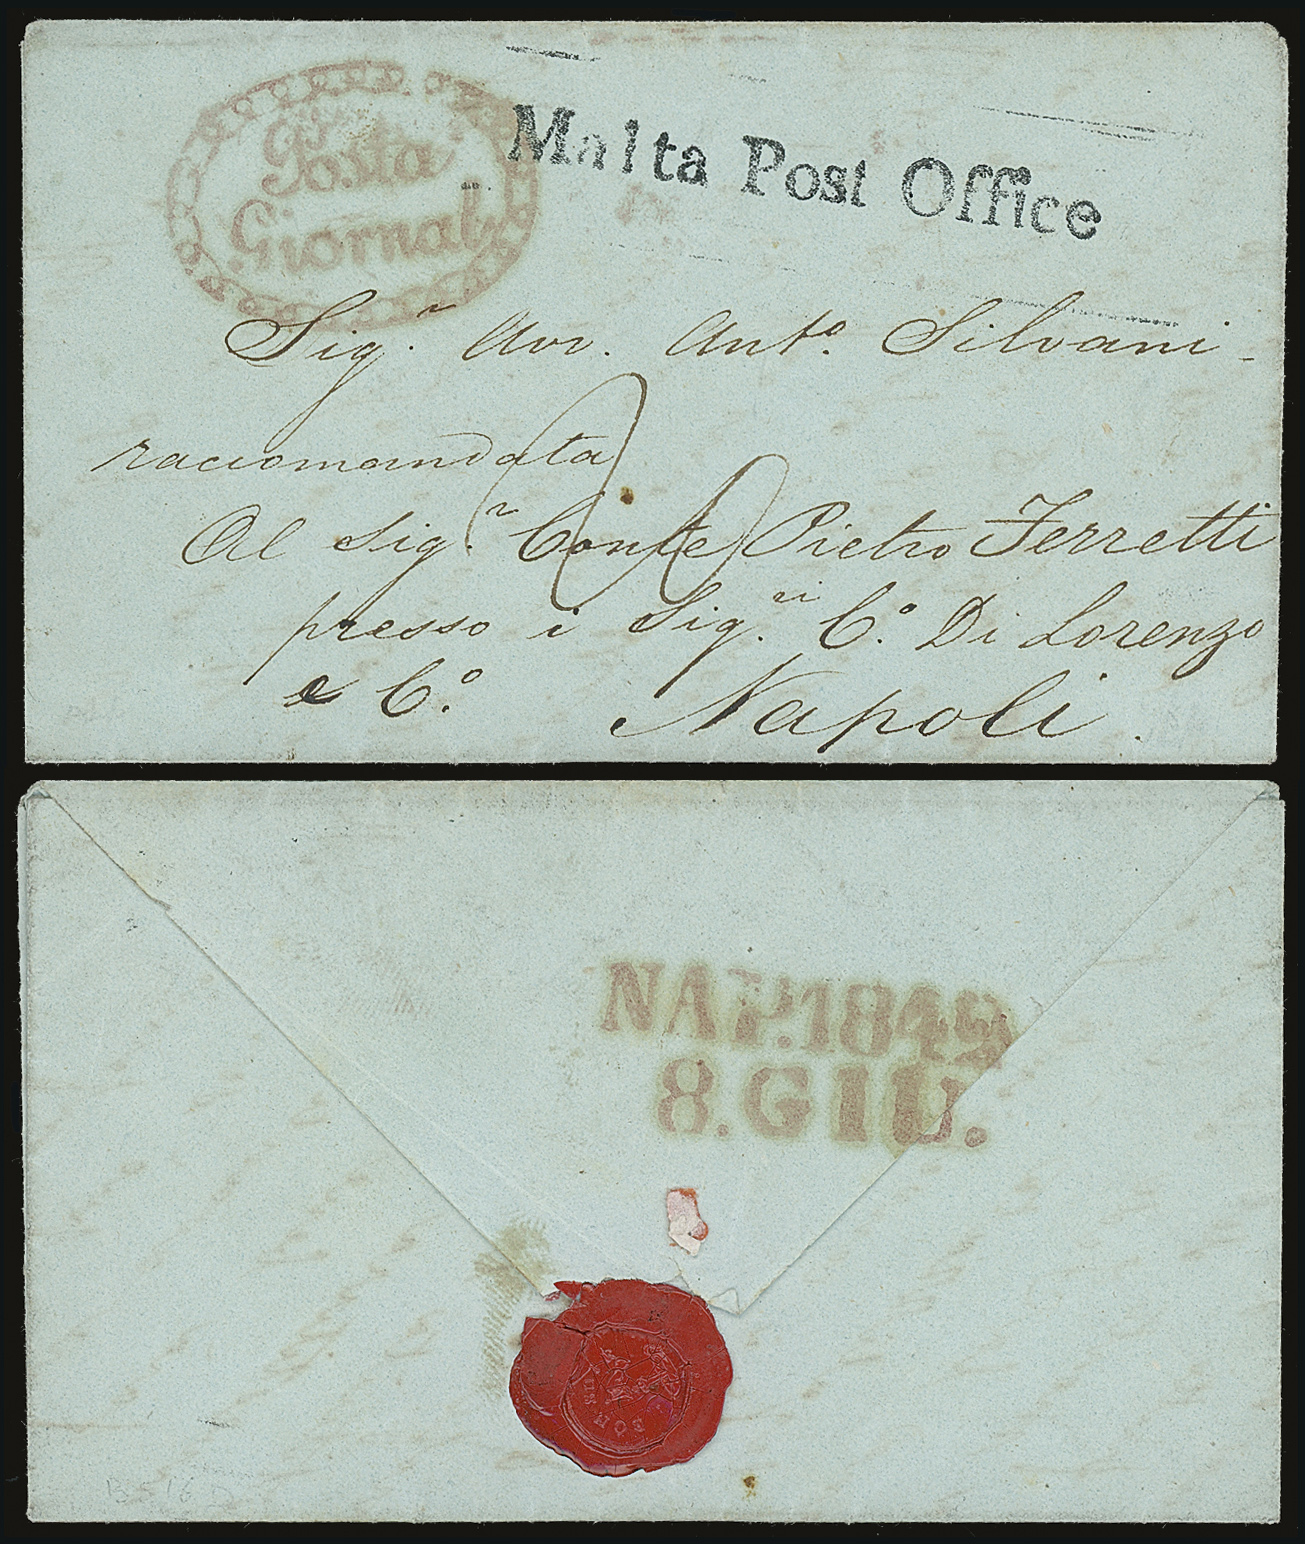 Posta
Giornal.
Malta Post Office
Sig.r Avv. Ant.o Silvani
raccomandata
Al Sig.r Conte Pietro Ferretti
presso i Sig.ri C.o Di Lorenzo
e C.o Napoli.
NAP.1849
8.GIU.